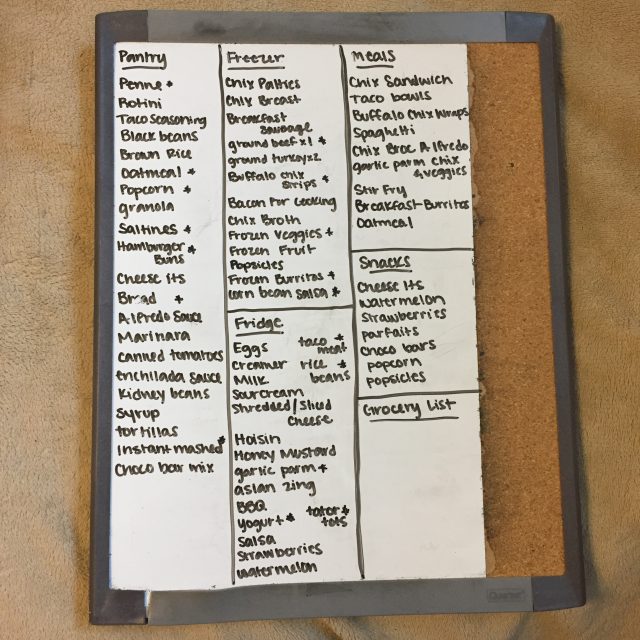 Pantry
Penne *
Rotini
Taco Seasoning
Black beans
Brown Rice
Oatmeal *
Popcorn *
granola
Saltines *
Hamburger *
Buns
Cheese Its
Bread *
Alfredo Sauce
Marinara
canned tomatoes
enchilada sauce
Kidney beans
Syrup
tortillas
Instant mashed *
Choco bar mix
Freezer
Chix Patties
Chix Breast
Breakfast
Sausage
ground beef x1 *
ground turkey x2
Buffalo chix
strips *
Bacon for Cooking
Chix Broth
Frozen Veggies *
Frozen Fruit
Popsicles
Frozen Burritos *
corn bean salsa *
Fridge
Eggs
creamer
Milk
Sour cream
Shredded/Slicd
Cheese
Hoisin
Honey Mustard
garlic parm *
asian zing
BBQ
yogurt *
Salsa
Strawberries
watermelon
taco *
meat
rice *
beans
tator *
tots
Meals
Chix Sandwich
Taco bowls
Buffalo Chix Wraps
Spaghetti
Chix Broc Alfredo
garlic parm chix
& veggies
Stir Fry
Breakfast Burritos
Oatmeal
Snacks
Cheese Its
Watermelon
Strawberries
parfaits
Choco bars
popcorn
popsicles
Grocery List
Quartet